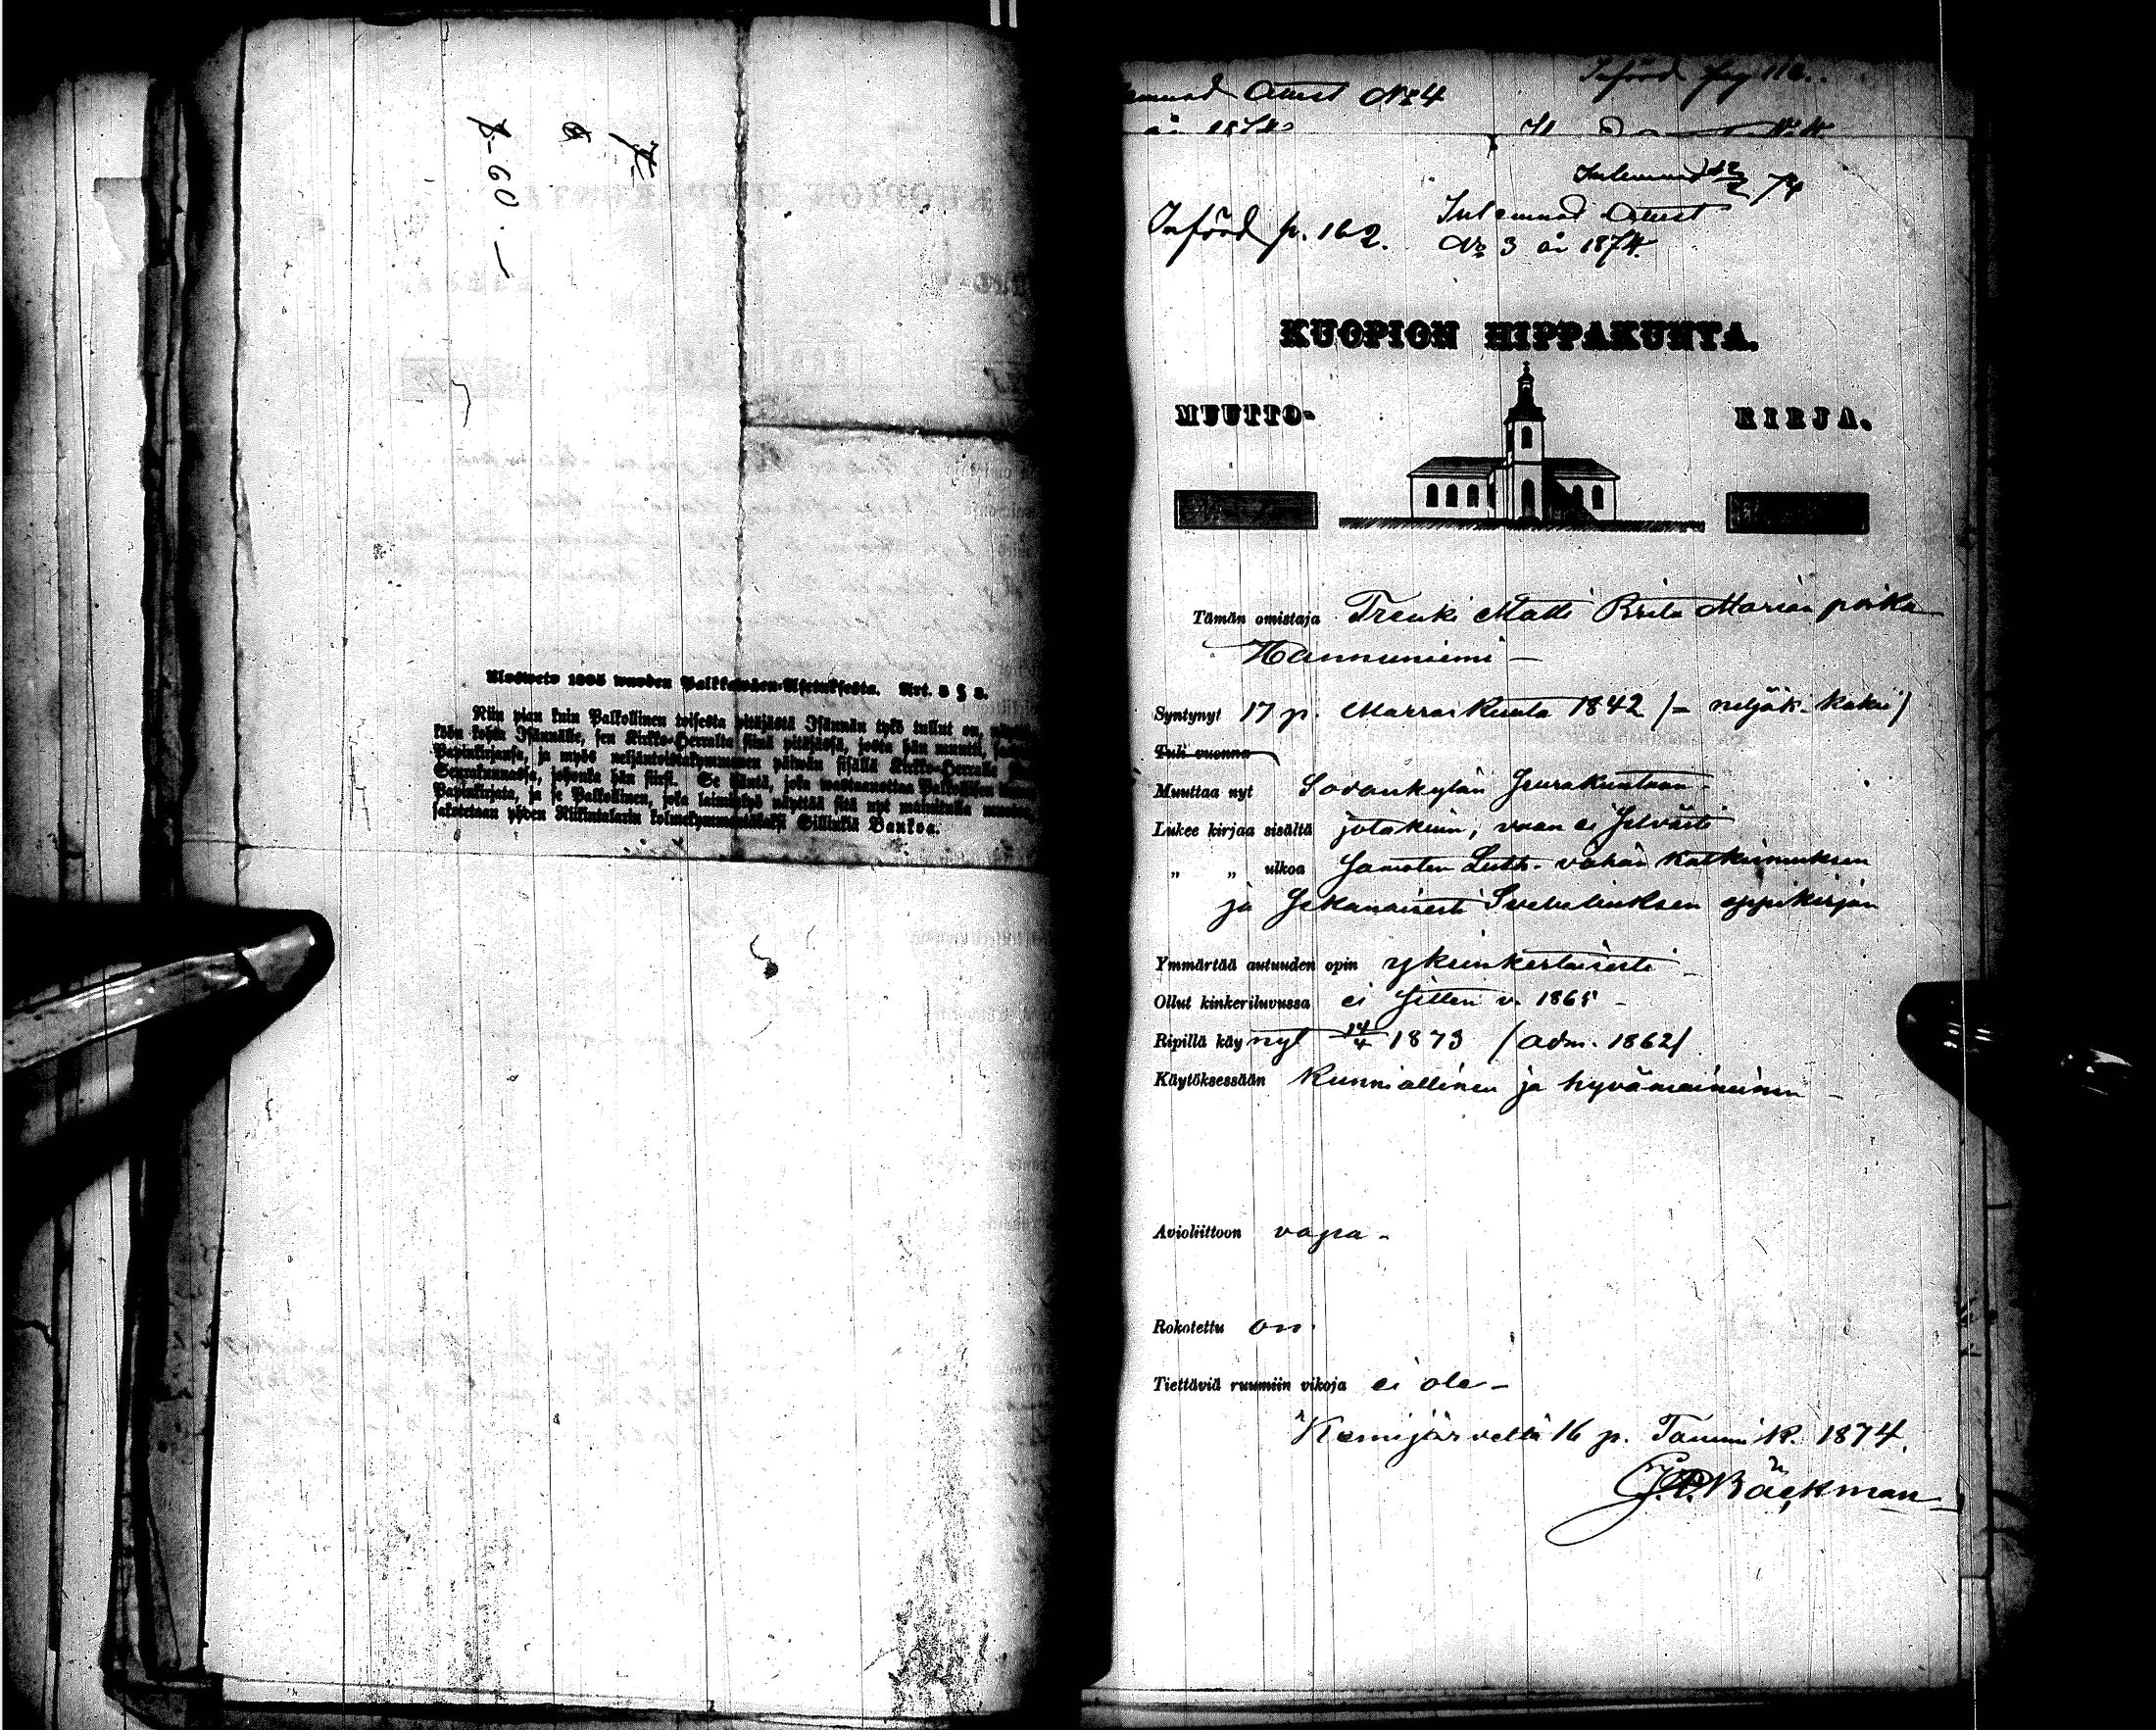 7
6
7-60.—
Ulosweto 1805 wuoden Palkkawäen-Asetuksesta. Art. 3 § 8.
Niin pian kuin Palkollinen toisesta pitäjästä Isännän tykö tullut on,
köön kohta Isännälle, sen Kirkko-Herralta siinä pitäjässä, josta hän muutti,
Papinkirjansa, ja myös neljäntoistakymmenen päiwän sisällä Kirkko-Herralle
Seurakunnassa, johonka hän siirsi. Se Isäntä, joka wastaanottaa Palkollisen
Papinkirjata, ja se Palkollinen, joka laimilyö näyttää sitä nyt mainitulla
sakotetaan yhden Riikintalarin kolmekymmentäkaksi Sillinkiä Bankoa.
Attest No 4
Införd pag 116.
Inlemnad 12/2 74
Införd p. 162.
Inlemnad Attest
No 3 år 1874.
KUOPION HIPPAKUNTA.
MUUTTO- KIRJA.
Tämän omistaja Trenki Matti Brita Marian poika
Hannuniemi —
Syntynyt 17 p. Marraskuuta 1842 /= neljäk. kaksi/
Tuli vuonna
Muuttaa nyt Sodankylän Seurakuntaan.
Lukee kirjaa sisältä jotakuin, vaan ei selvästi
„ „ ulkoa Samoten Luth. vähän katkismuksen
ja sekanaisesti Svebeliuksen oppikirjan
Ymmärtää autuuden opin yksinkertaisesti —
Ollut kinkeriluvussa ei sitten v. 1865 —
Ripillä käynyt 14/4 1873 /adm. 1862/
Käytöksessään kunniallinen ja hyvämaineinen —
Avioliittoon vapa -
Rokotettu on.
Tiettäviä ruumiin vikoja ei ole —
Kemijärvellä 16 p. Tammik. 1874.
Bäckman